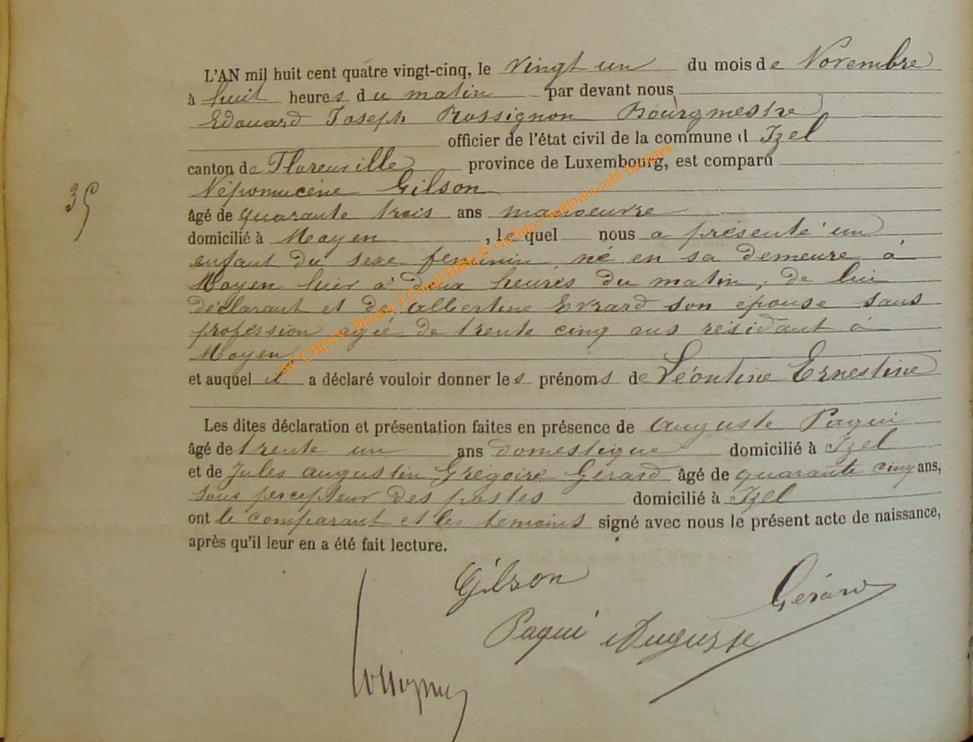 L'AN mil huit cent quatre vingt-cinq, le vingt un du mois de Novembre
à huit heures du matin par devant nous
Edouard Joseph Rossignon Bourgmestre
officier de l'état civil de la commune d Izel
canton de Florenville province de Luxembourg, est comparu
Népomucène Gilson
35
âgé de quarante trois ans manoeuvre
domicilié à Moyen, le quel nous a présenté un
enfant du sexe féminin, né en sa demeure à
Moyen hier à deux heures du matin, de lui
déclarant et de Albertine Evrard son épouse sans
profession agée de trente cinq ans résidant à
Moyen
et auquel il a déclaré vouloir donner les prénoms de Léontine Ernestine
Les dites déclaration et présentation faites en présence de Auguste Paqui
âgé de trente un ans domestique domicilié à Izel
et de Jules Augustin Grégoire Gérard âgé de quarante cinq ans,
sous percepteur des postes domicilié à Izel
ont le comparant et les témoins signé avec nous le présent acte de naissance,
après qu'il leur en a été fait lecture.
Gilson
Gérard
Paqui Auguste
Rossignon